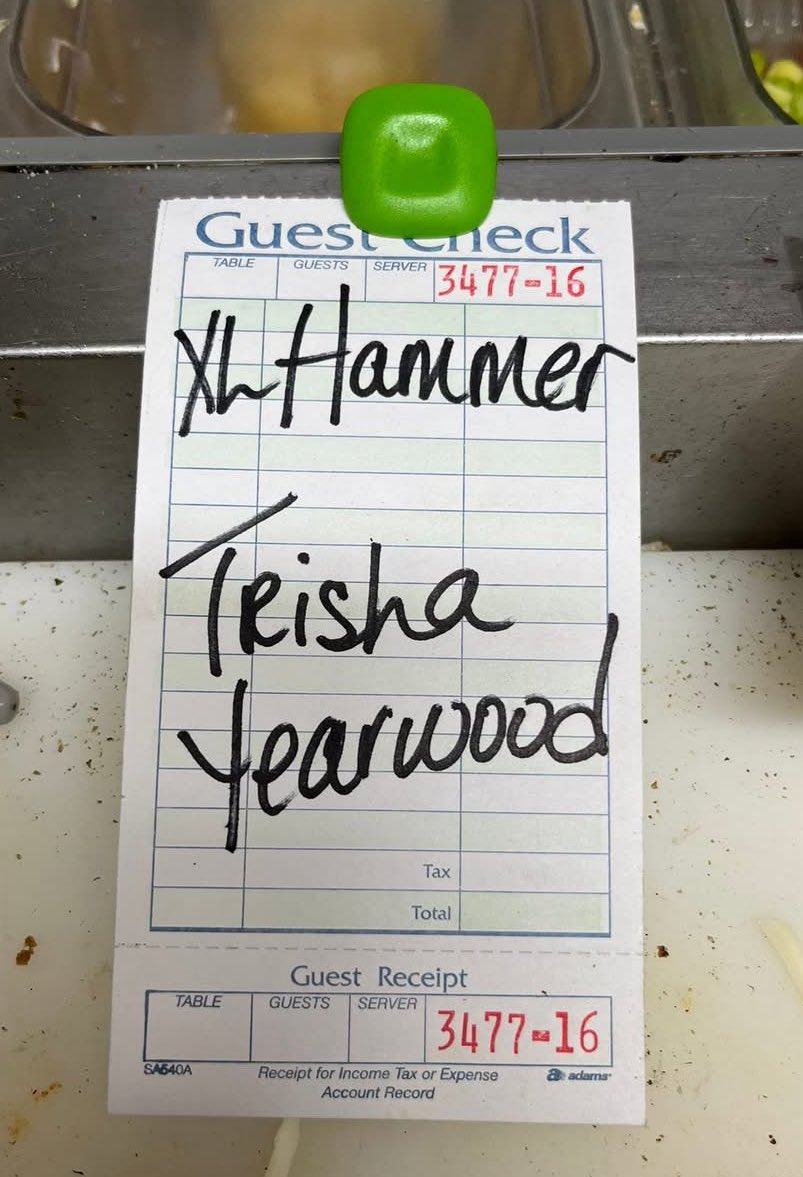 Guest Check
TABLE GUESTS SERVER 3477-16
XL Hammer
Trisha
Yearwood
Tax
Total
Guest Receipt
TABLE GUESTS SERVER 3477-16
SA540A Receipt for Income Tax or Expense adams
Account Record